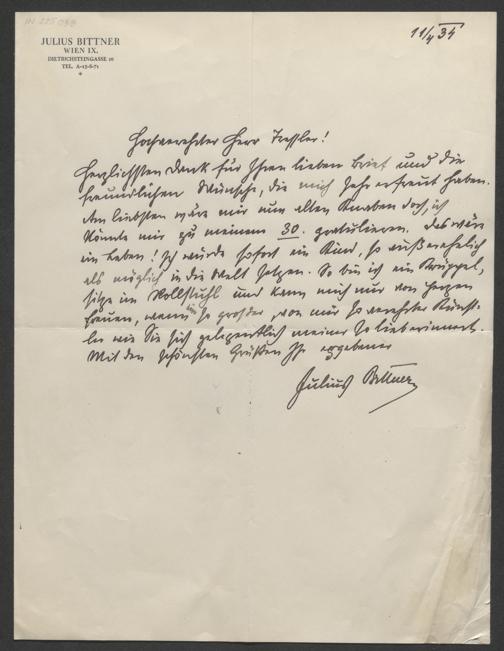 IN 225 088
JULIUS BITTNER
WIEN IX.
DIETRICHSTEINGASSE 10
TEL. A-15-8-71
11/4 34
Hochverehrter Herr Treßler!
Herzlichsten Dank für Ihren lieben Brief und die
freundlichen Wünsche, die mich sehr erfreut haben.
Am liebsten wäre mir nun alten Knaben doch, ich
könnte mir zu meinem 30. gratulieren. Das wäre
ein Leben! Ich würde sofort ein Kind, so außerehelich
als möglich in die Welt setzen. So bin ich ein Krüppel,
sitze im Rollstuhl und kann mich nur von Herzen
freuen, wenn ein so großer, von mir so verehrter Künst-
ler wie Sie sich gelegentlich meiner so lieb erinnert.
Mit den schönsten Grüßen Ihr ergebener
Julius Bittner